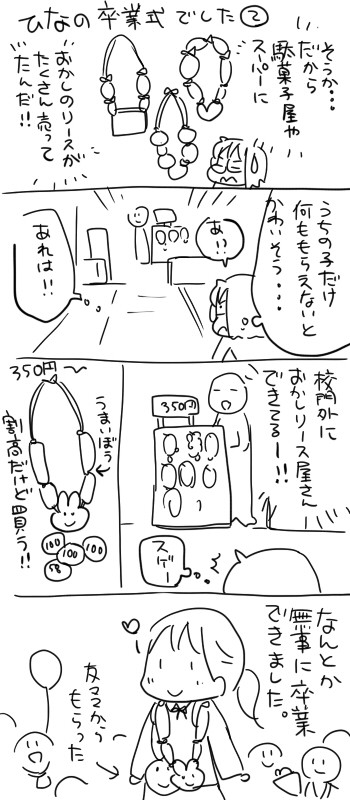 ひなの卒業式でした②
そうか・・・
だから
駄菓子屋や
スーパーに
おかしのリースが
たくさん売って
たんだ!!
うちの子だけ
何ももらえないと
かわいそう・・・
あ!!
あれは!!
校門外に
おかしリース屋さん
できてるー!!
350円
スゲー
350円〜
うまいぼう
割高だけど買う!!
100
100
100
50
なんとか
無事に卒業
できました。
友ママから
もらった